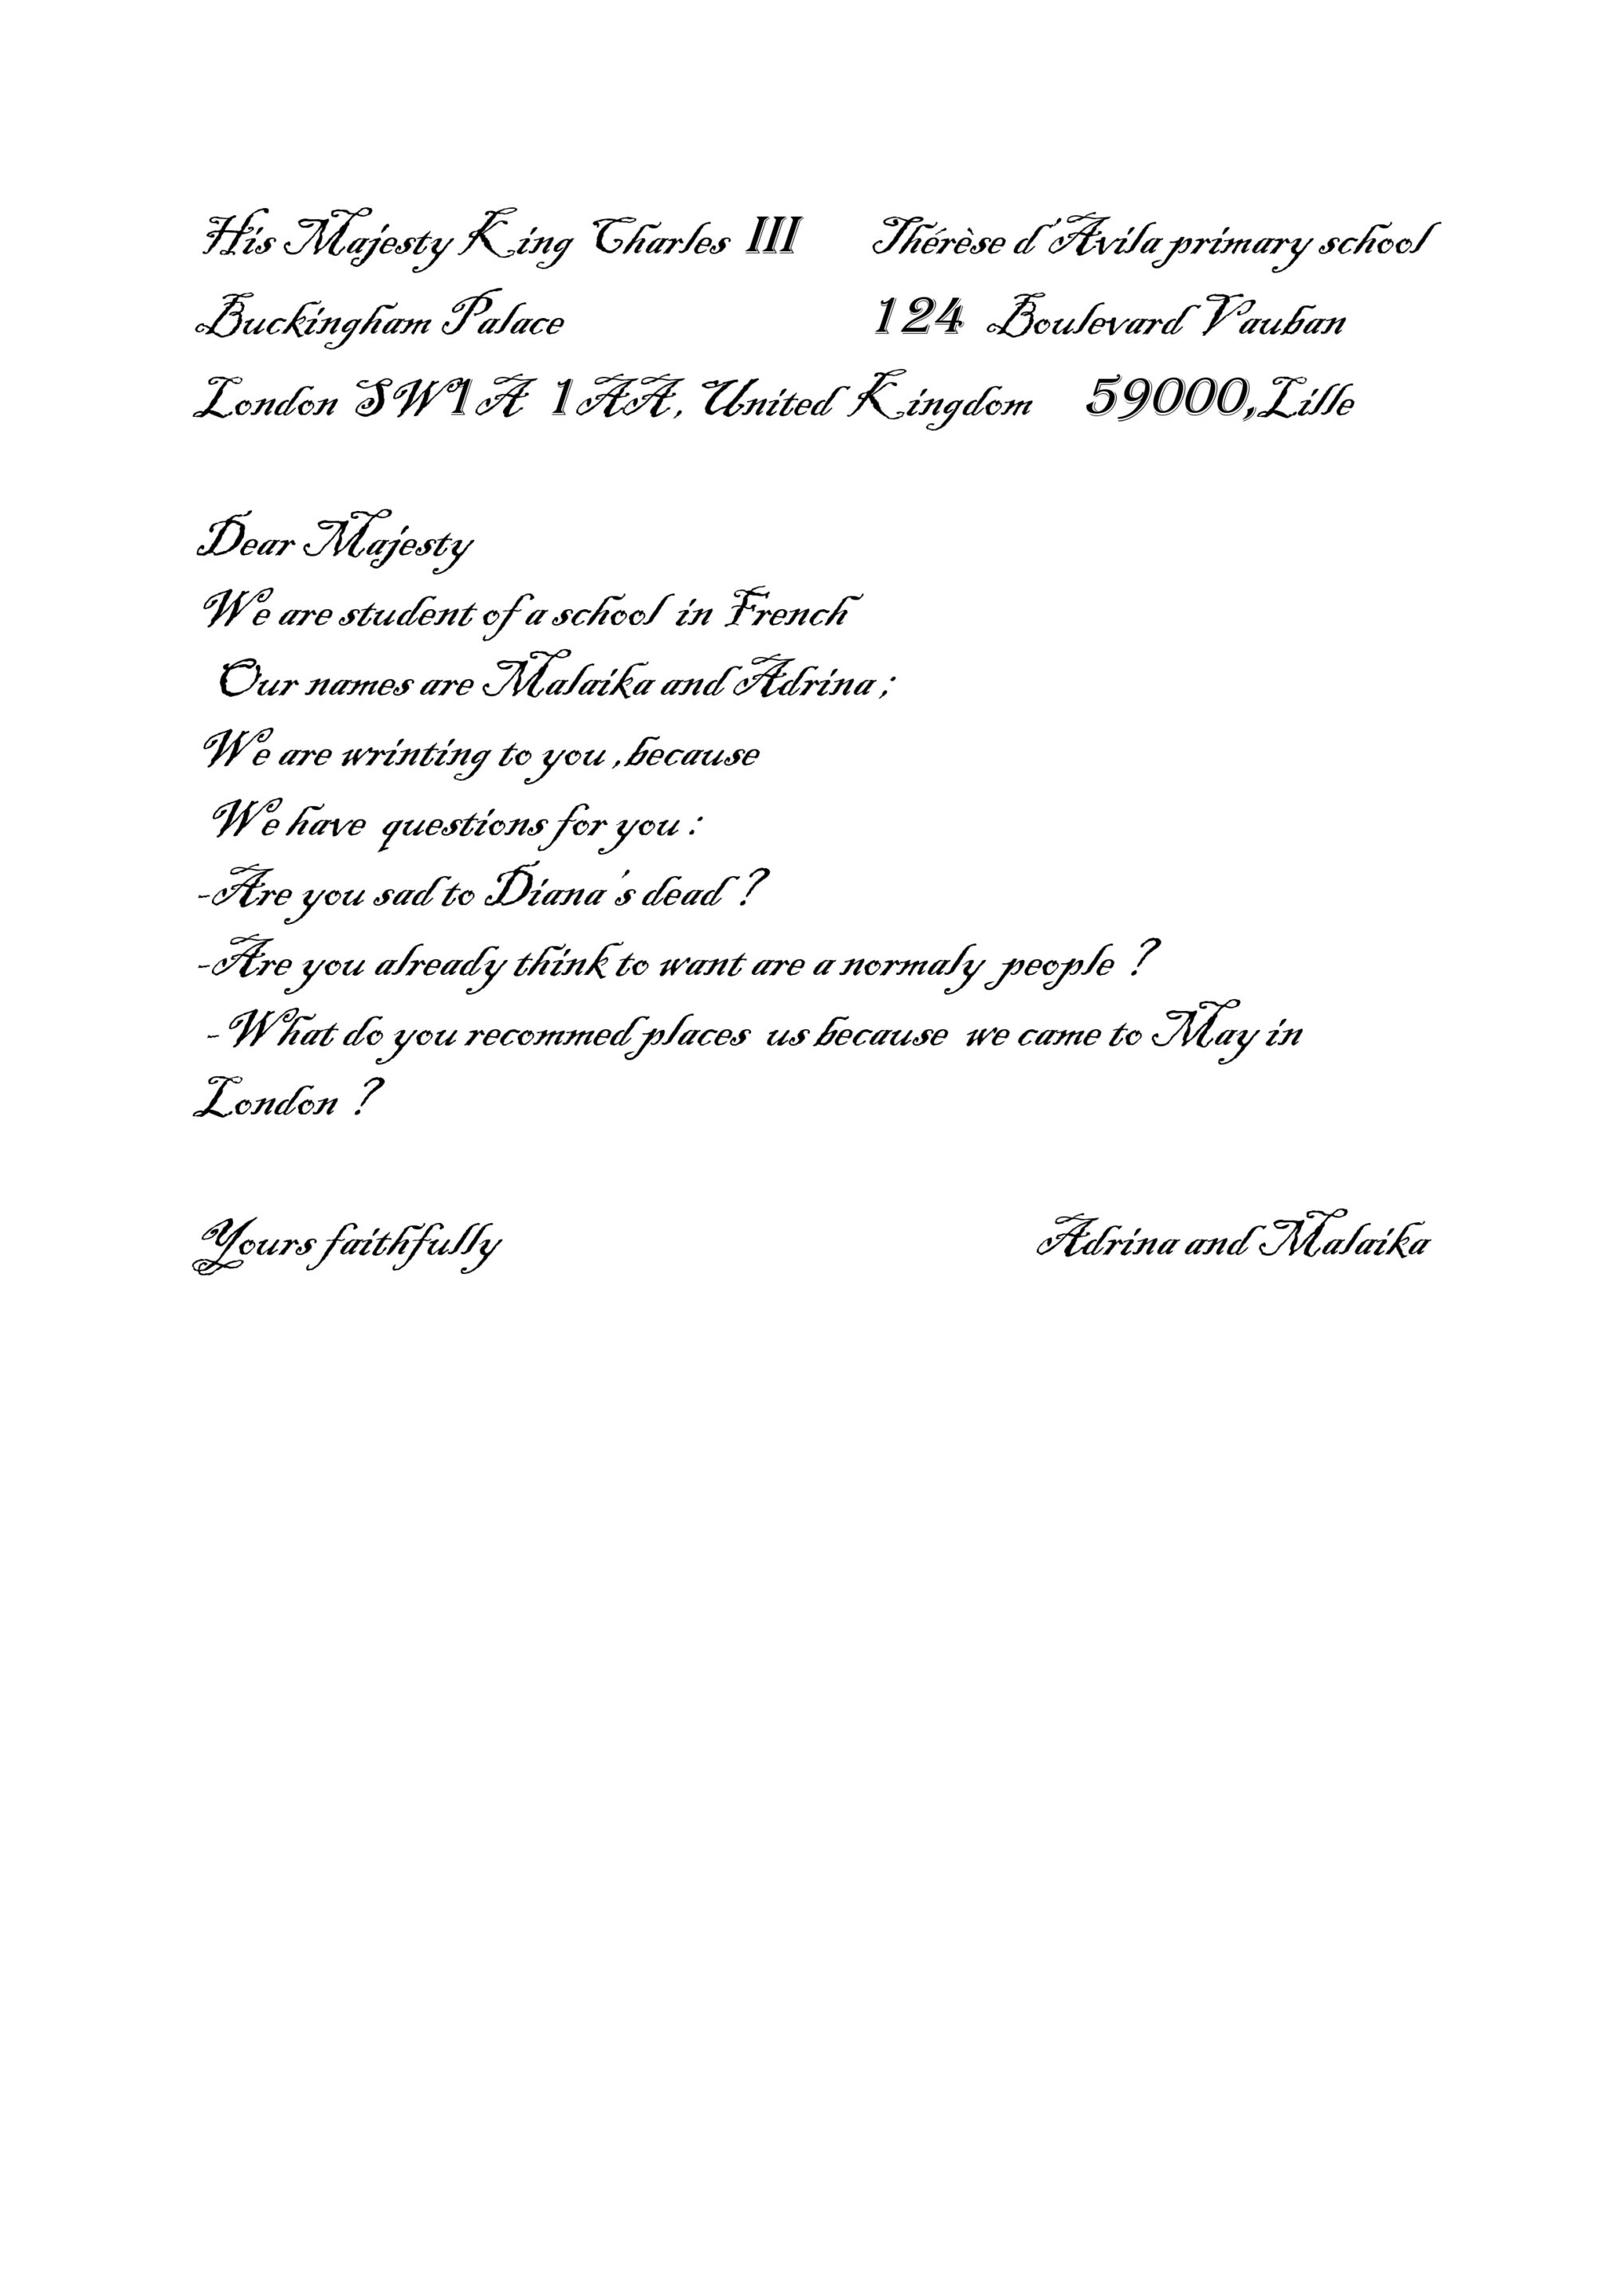 His Majesty King Charles III Thérèse d'Avila primary school
Buckingham Palace 124 Boulevard Vauban
London SW1A 1AA, United Kingdom 59000,Lille
Dear Majesty
We are student of a school in French
Our names are Malaika and Adrina ;
We are wrinting to you ,because
We have questions for you :
-Are you sad to Diana's dead ?
-Are you already think to want are a normaly people ?
-What do you recommed places us because we came to May in
London ?
Yours faithfully Adrina and Malaika